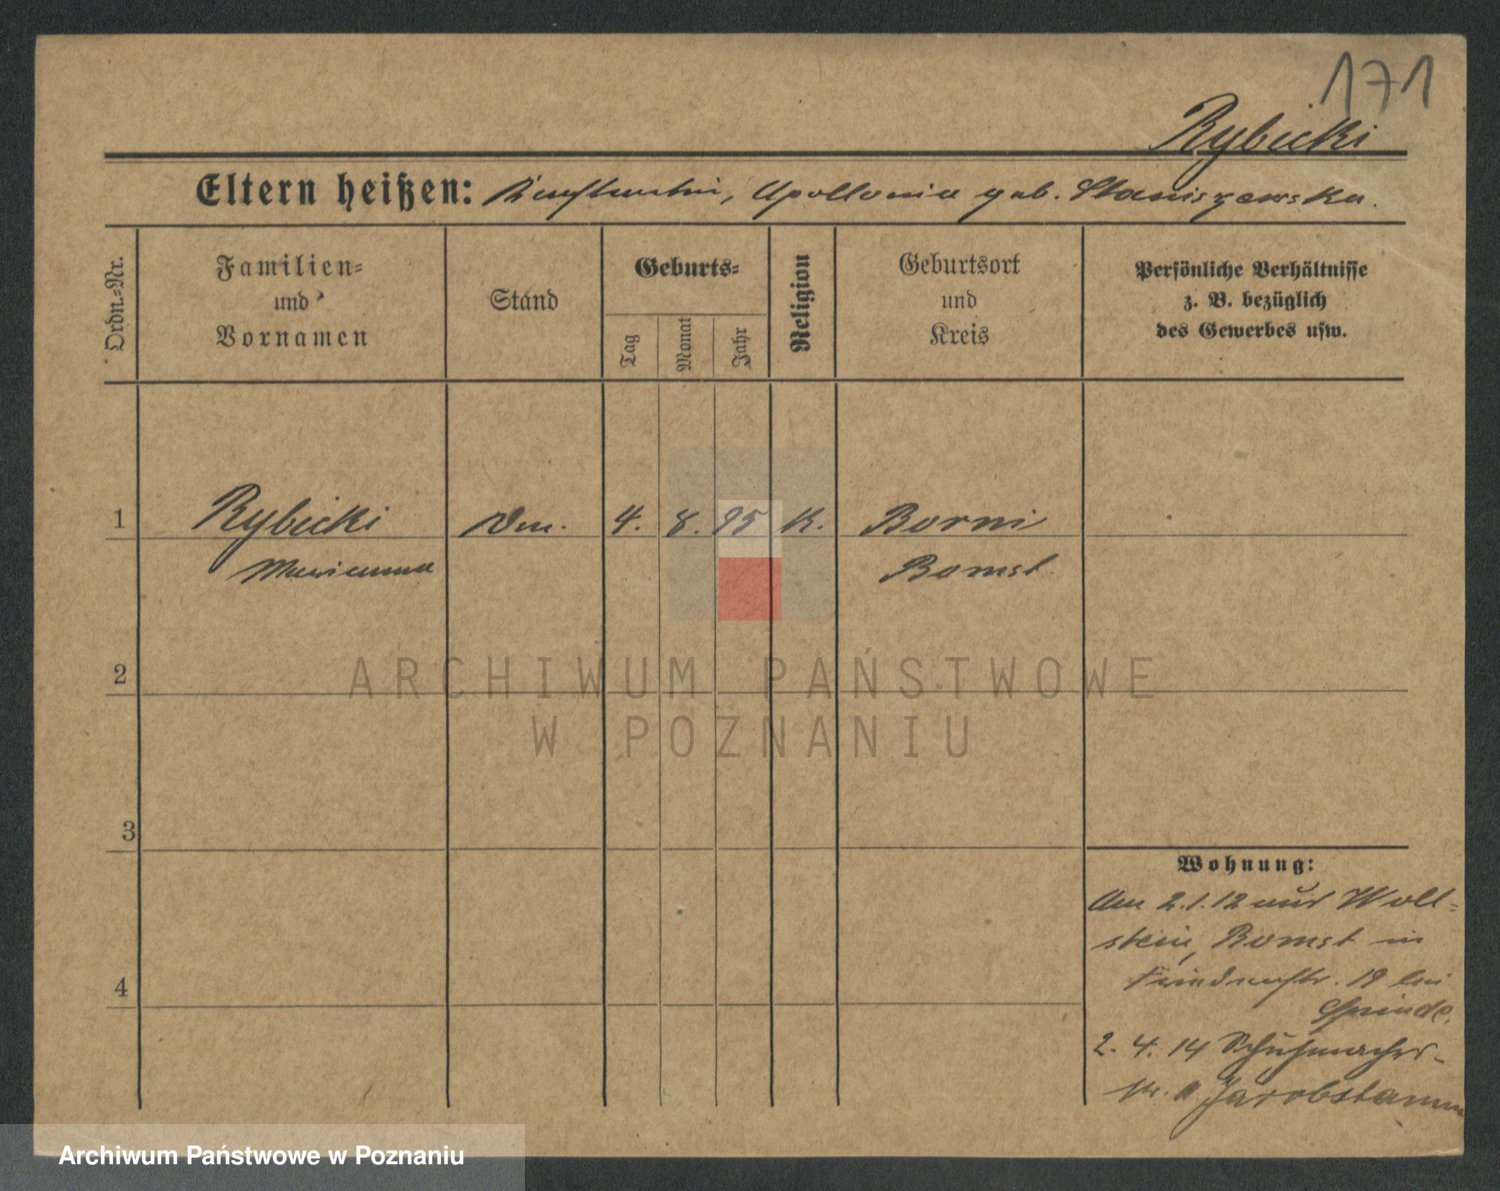 171
Rybicki
Eltern heißen: Konstantin, Apollonia geb. Staniszewska.
Ordn.-Nr.
Familien-
und
Vornamen
Stand
Geburts-
Tag
Monat
Jahr
Religion
Geburtsort
und
Kreis
Persönliche Verhältnisse
z. B. bezüglich
des Gewerbes usw.
1 Rybicki 4. 8. 95 K. Borni
Marianna Bomst
2
3
4
Wohnung:
Am 2.1.12 aus Woll-
stein, Bomst in
19 bei
2. 4. 14 Schuhmacher-
str. 11 Jacobstamm
ARCHIWUM PAŃSTWOWE
W POZNANIU
Archiwum Państwowe w Poznaniu